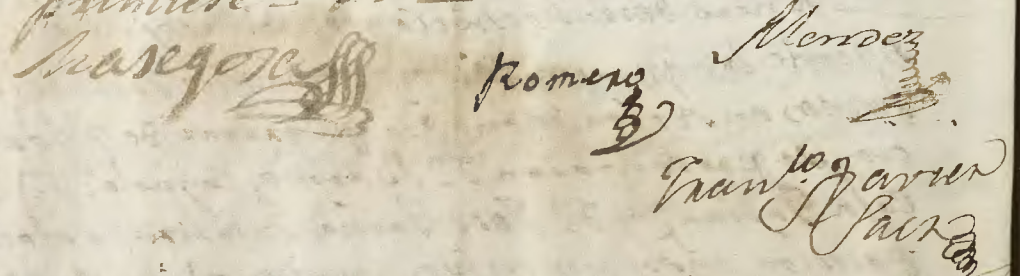 Masegosa Romero Mendez
Fran.co Xavier
Saez